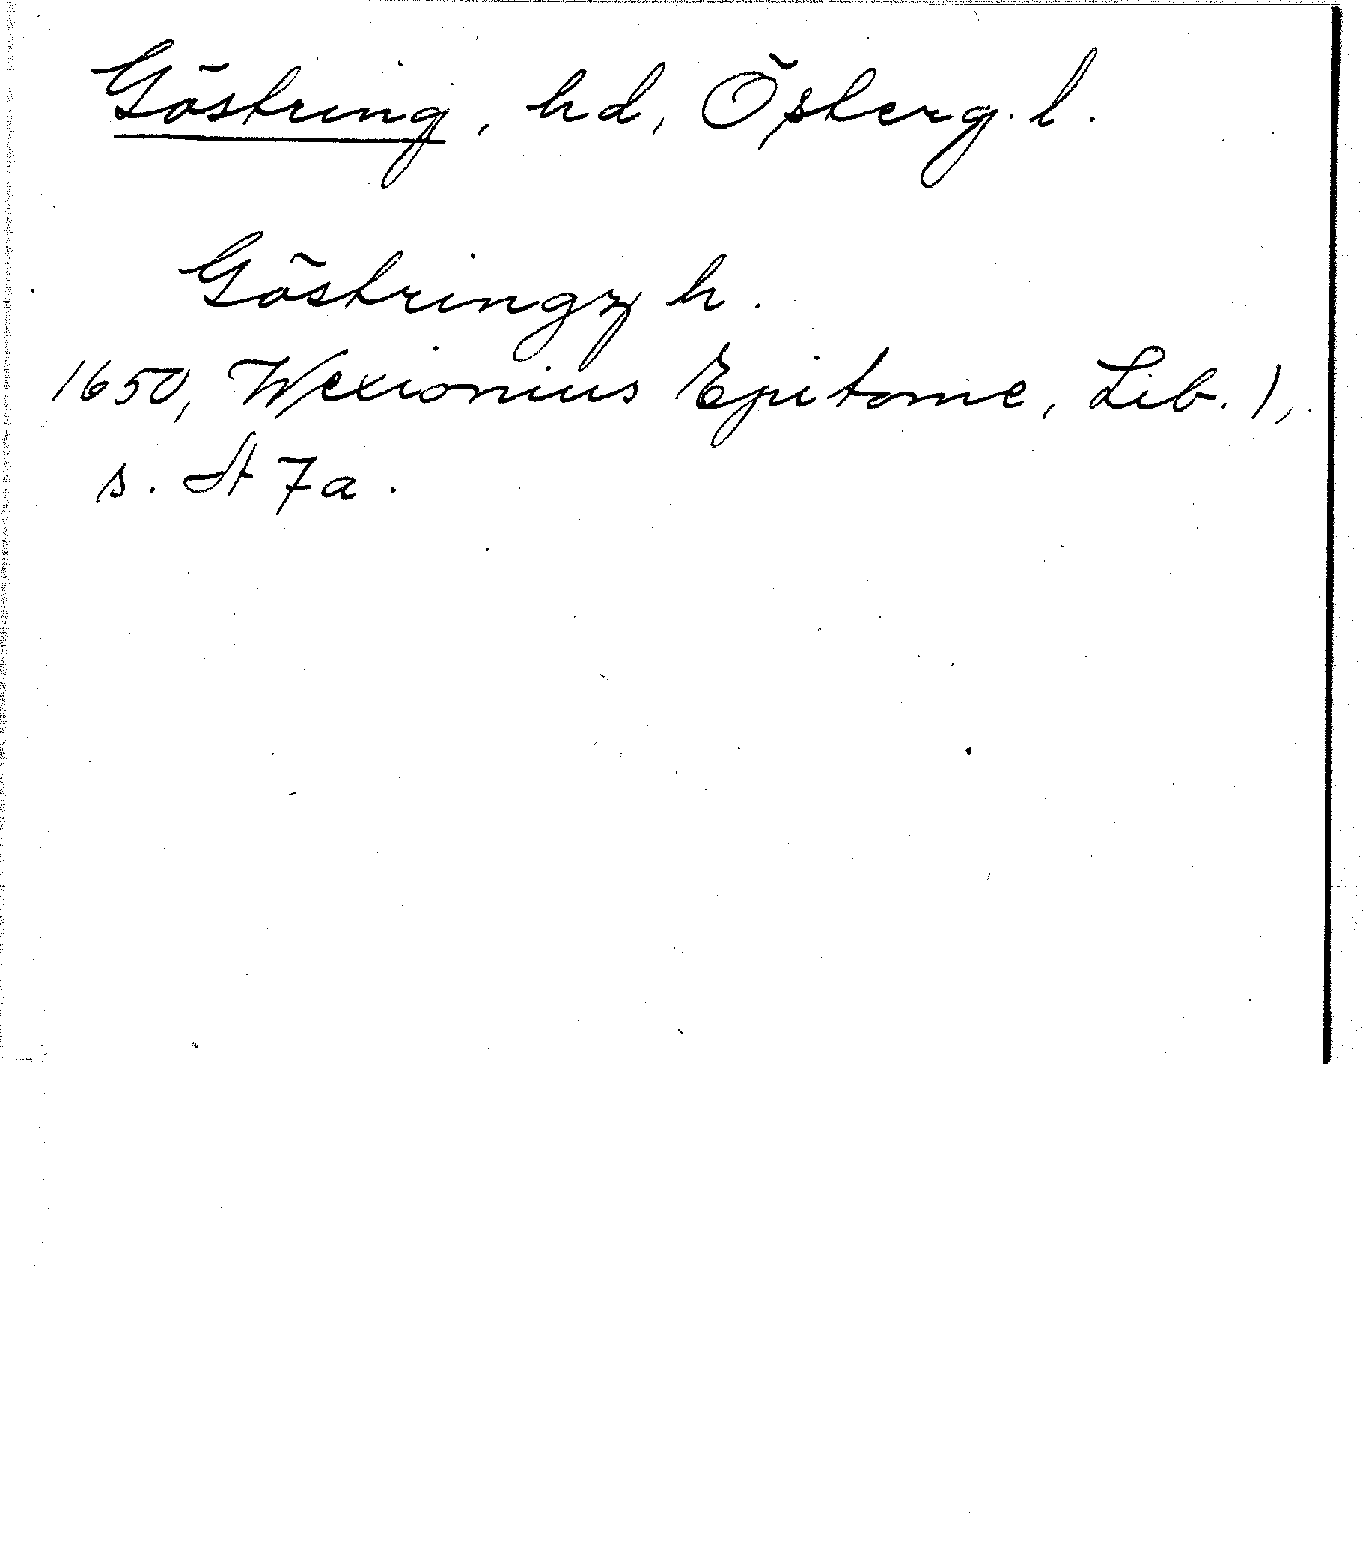 Göstring, hd, Österg. l.
Göstringz h.
1650, Wexionius Epitome, Lib. 1,
s. A 7a.